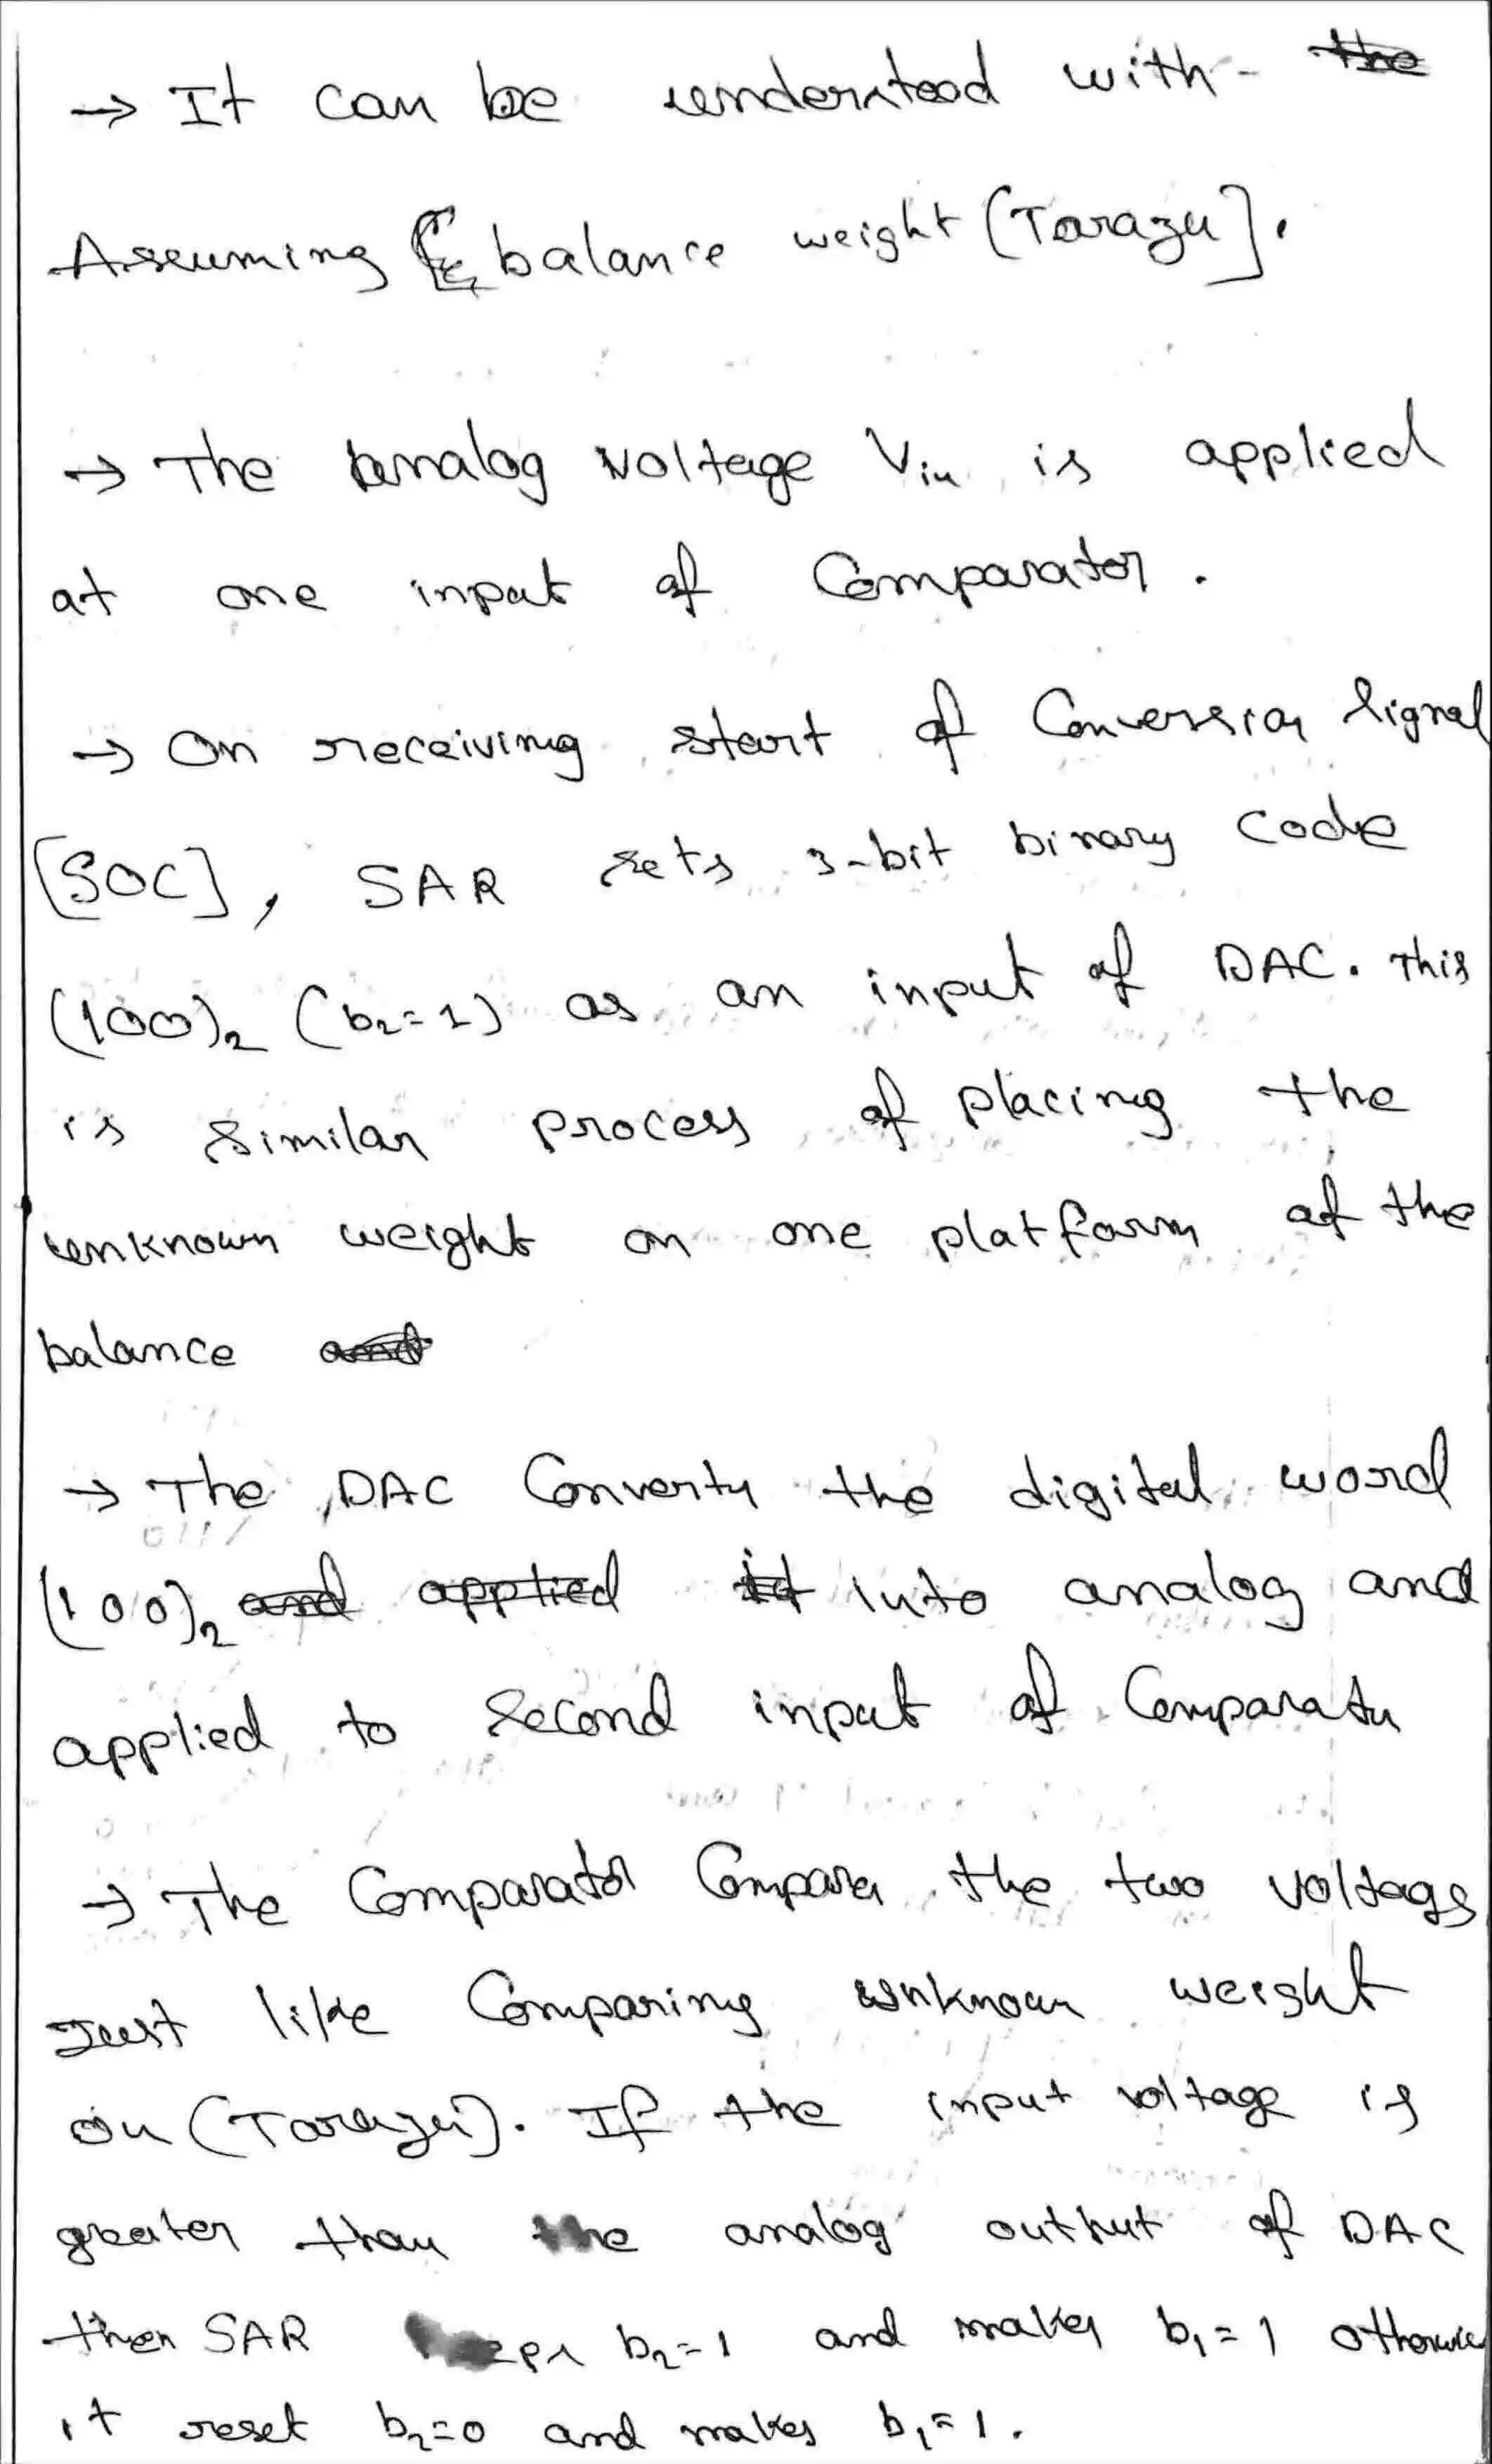 → It can be understood with - the
Assuming balance weight (Tarazu].
→ The analog voltage Vin is applied
at one input of Comparator.
→ On receiving start of Conversion Signal
[SOC], SAR sets 3-bit binary code
(100)₂ (b₂=1) as an input of DAC. This
is similar process of placing the
unknown weight on one platform of the
balance and
→ The DAC Converts the digital word
(100)₂ and applied it into analog and
applied to second input of Comparator
→ The Comparator Compares the two voltags
Just like Comparing unknown weight
on (Tarazu). If the input voltage is
greater than the analog output of DAC
then SAR b₂=1 and makes b₁=1 otherwise
it reset b₂=0 and makes b₁=1.